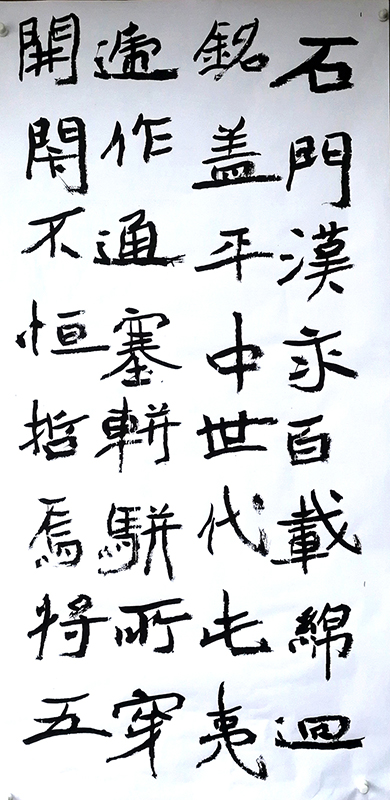 石門漢永百載綿迴
銘盖平中世代屯夷
遞作通塞軿駢所穿
開閇不恒哲焉將五